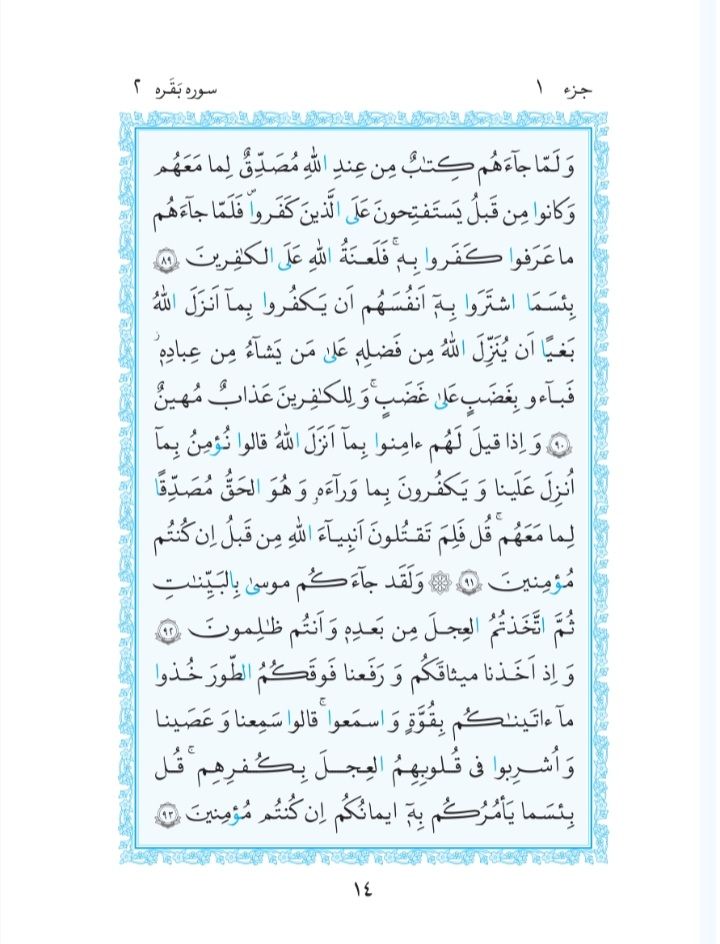 جزء ١ سوره بَقَره ٢
وَ لَمّا جآءَهُم كِتٰبٌ مِن عِندِ اللّٰهِ مُصَدِّقٌ لِما مَعَهُم
وَ كانوا مِن قَبلُ يَستَفتِحونَ عَلَى الَّذينَ كَفَروا فَلَمّا جآءَهُم
ما عَرَفوا كَفَروا بِهٖ ۚ فَلَعنَةُ اللّٰهِ عَلَى الكٰفِرينَ ﴿٨٩﴾
بِئسَمَا اشتَرَوا بِهٖٓ اَنفُسَهُم اَن يَكفُروا بِمآ اَنزَلَ اللّٰهُ
بَغيًا اَن يُنَزِّلَ اللّٰهُ مِن فَضلِهٖ عَلىٰ مَن يَشآءُ مِن عِبادِهٖ ۖ
فَبآءو بِغَضَبٍ عَلىٰ غَضَبٍ ۚ وَ لِلكٰفِرينَ عَذابٌ مُهينٌ
﴿٩٠﴾ وَ اِذا قيلَ لَهُم ءامِنوا بِمآ اَنزَلَ اللّٰهُ قالوا نُؤمِنُ بِمآ
اُنزِلَ عَلَينا وَ يَكفُرونَ بِما وَرآءَهٗ وَ هُوَ الحَقُّ مُصَدِّقًا
لِما مَعَهُم ۗ قُل فَلِمَ تَقتُلونَ اَنبِيآءَ اللّٰهِ مِن قَبلُ اِن كُنتُم
مُؤمِنينَ ﴿٩١﴾ ۞ وَ لَقَد جآءَكُم موسىٰ بِالبَيِّنٰتِ
ثُمَّ اتَّخَذتُمُ العِجلَ مِن بَعدِهٖ وَ اَنتُم ظٰلِمونَ ﴿٩٢﴾
وَ اِذ اَخَذنا ميثاقَكُم وَ رَفَعنا فَوقَكُمُ الطّورَ خُذوا
مآ ءاتَينٰكُم بِقُوَّةٍ وَ اسمَعوا ۖ قالوا سَمِعنا وَ عَصَينا
وَ اُشرِبوا فى قُلوبِهِمُ العِجلَ بِكُفرِهِم ۚ قُل
بِئسَما يَأمُرُكُم بِهٖٓ ايمانُكُم اِن كُنتُم مُؤمِنينَ ﴿٩٣﴾
١٤